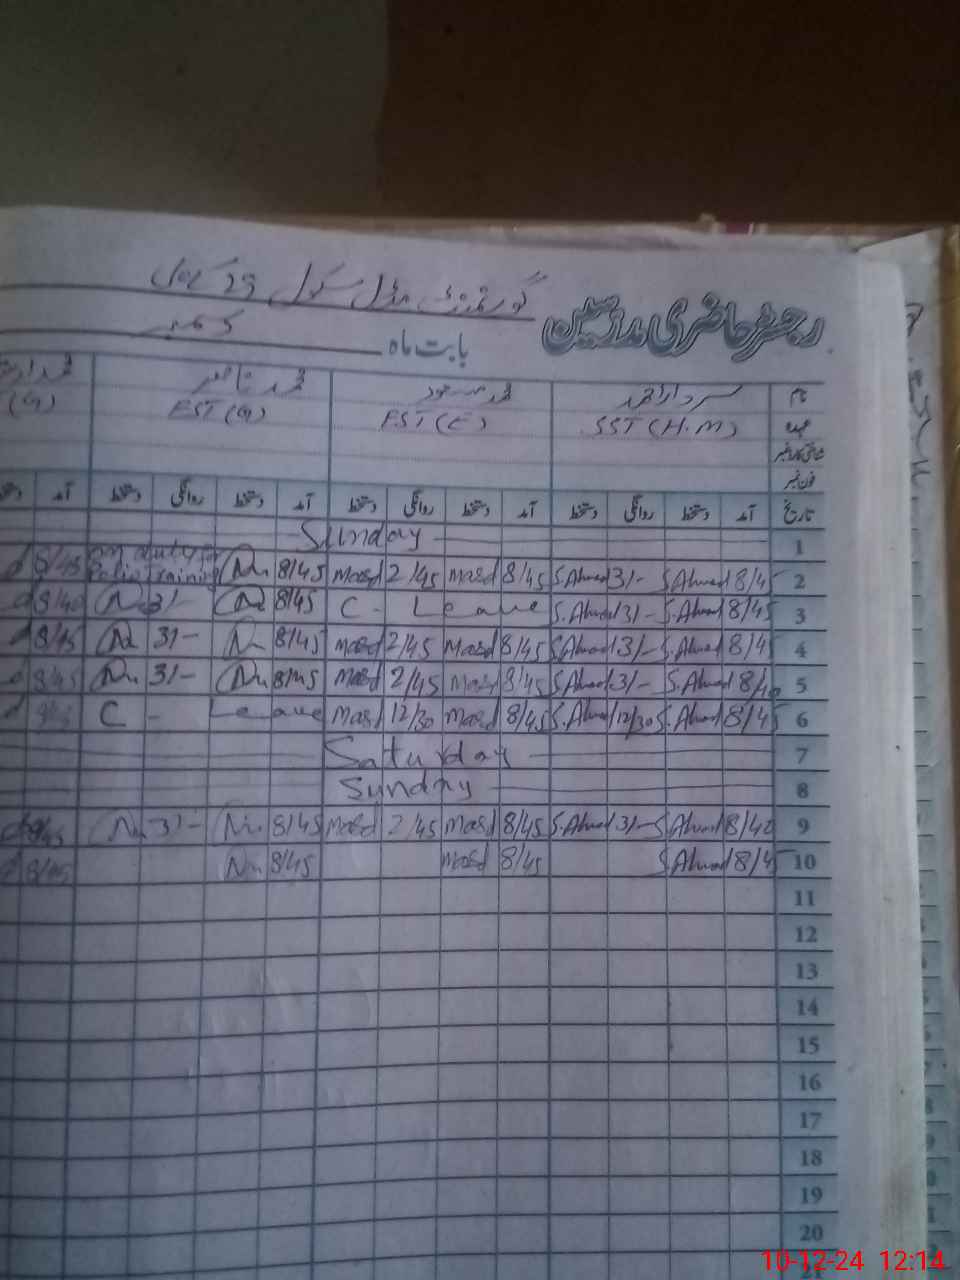 رجسٹر حاضری مدرسین گورنمنٹ مڈل سکول
بابت ماہ دسمبر
نام سردار احمد محمد مسعود محمد ناصر محمد
عہدہ SST (H.M) EST (E) EST (G) (G)
شناختی کارڈ نمبر
فون نمبر
تاریخ آمد دستخط روانگی دستخط آمد دستخط روانگی دستخط آمد دستخط روانگی دستخط آمد
1 Sunday
2 8/45 S.Ahmad 3/- S.Ahmad 8/45 masd 2/45 masd 8/45 on duty for Polio Training 8/45
3 8/45 S.Ahmad 3/- S.Ahmad C - Leave 8/45 3/- 8/40
4 8/45 S.Ahmad 3/- S.Ahmad 8/45 masd 2/45 masd 8/45 3/- 8/45
5 8/40 S.Ahmad 3/- S.Ahmad 8/45 masd 2/45 masd 8/45 3/- 8/45
6 8/45 S.Ahmad 12/30 S.Ahmad 8/45 masd 12/30 masd C - Leave
7 Saturday
8 Sunday
9 8/42 S.Ahmad 3/- S.Ahmad 8/45 masd 2/45 masd 8/45 3/- 8/45
10 8/45 S.Ahmad 8/45 masd 8/45 8/45
11
12
13
14
15
16
17
18
19
20
10-12-24 12:14